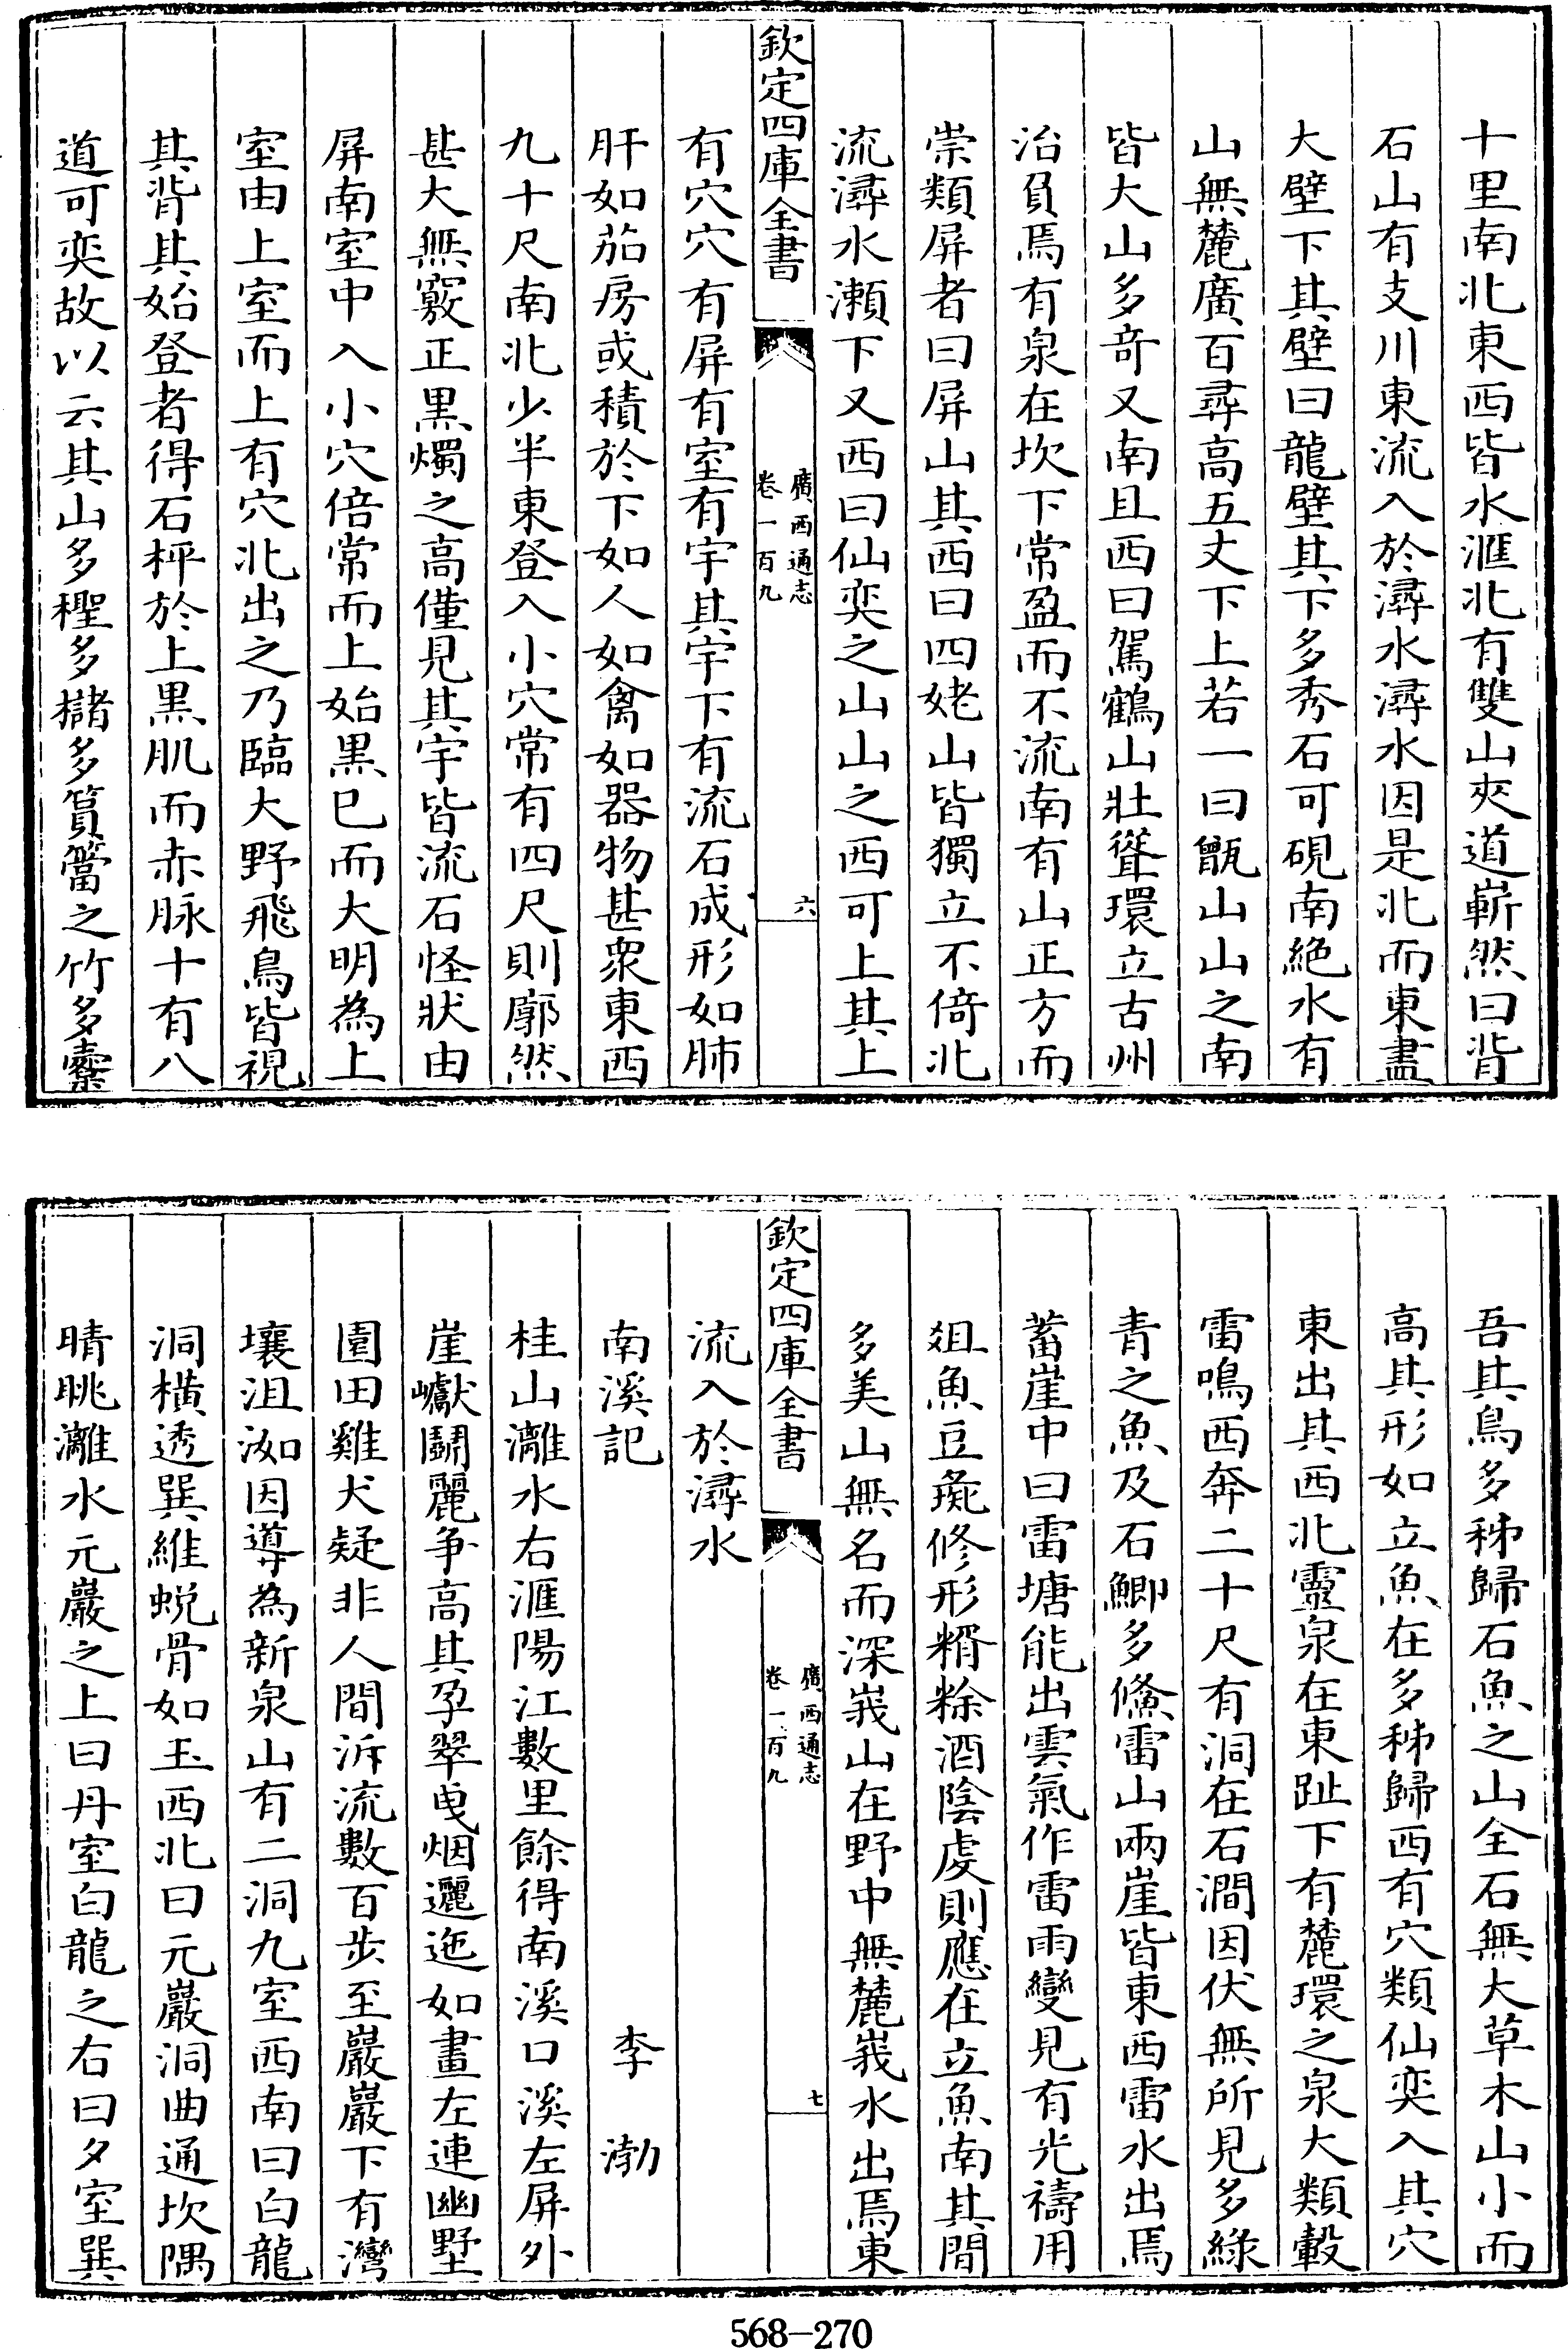 十里南北東西皆水滙北有雙山夾道嶄然曰背
石山有支川東流入於潯水潯水因是北而東盡
大壁下其壁曰龍壁其下多秀石可硯南絶水有
山無麓廣百尋高五丈下上若一曰甑山山之南
皆大山多竒又南且西曰駕鶴山壯聳環立古州
治負焉有泉在坎下常盈而不流南有山正方而
崇類屏者曰屏山其西曰四姥山皆獨立不倚北
流潯水瀬下又西曰仙奕之山山之西可上其上
欽定四庫全書
廣西通志
卷一百九
六
有穴穴有屏有室有宇其宇下有流石成形如肺
肝如茄房或積於下如人如禽如器物甚衆東西
九十尺南北少半東登入小穴常有四尺則廓然
甚大無竅正黒燭之高僅見其宇皆流石怪狀由
屏南室中入小穴倍常而上始黒已而大明為上
室由上室而上有穴北出之乃臨大野飛鳥皆視
其背其始登者得石枰於上黒肌而赤脉十有八
道可奕故以云其山多檉多櫧多篔簹之竹多櫜
吾其鳥多秭歸石魚之山全石無大草木山小而
高其形如立魚在多秭歸西有穴類仙奕入其穴
東出其西北靈泉在東趾下有麓環之泉大類轂
雷鳴西奔二十尺有洞在石澗因伏無所見多緑
青之魚及石鯽多鯈雷山兩崖皆東西雷水出焉
蓄崖中曰雷塘能出雲氣作雷雨變見有光禱用
俎魚豆彘修形糈稌酒陰虔則應在立魚南其間
多美山無名而深峩山在野中無麓峩水出焉東
欽定四庫全書
廣西通志
卷一百九
七
流入於潯水
南溪記
李渤
桂山灕水右滙陽江數里餘得南溪口溪左屏外
崖巘鬭麗争高其孕翠曳烟邐迤如畫左連幽墅
園田雞犬疑非人間泝流數百步至巖巖下有灣
壤沮洳因導為新泉山有二洞九室西南曰白龍
洞横透巽維蜕骨如玉西北曰元巖洞曲通坎隅
晴眺灕水元巖之上曰丹室白龍之右曰夕室巽
568-270